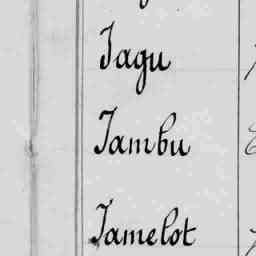 Jagu
Jambu
Jamelot